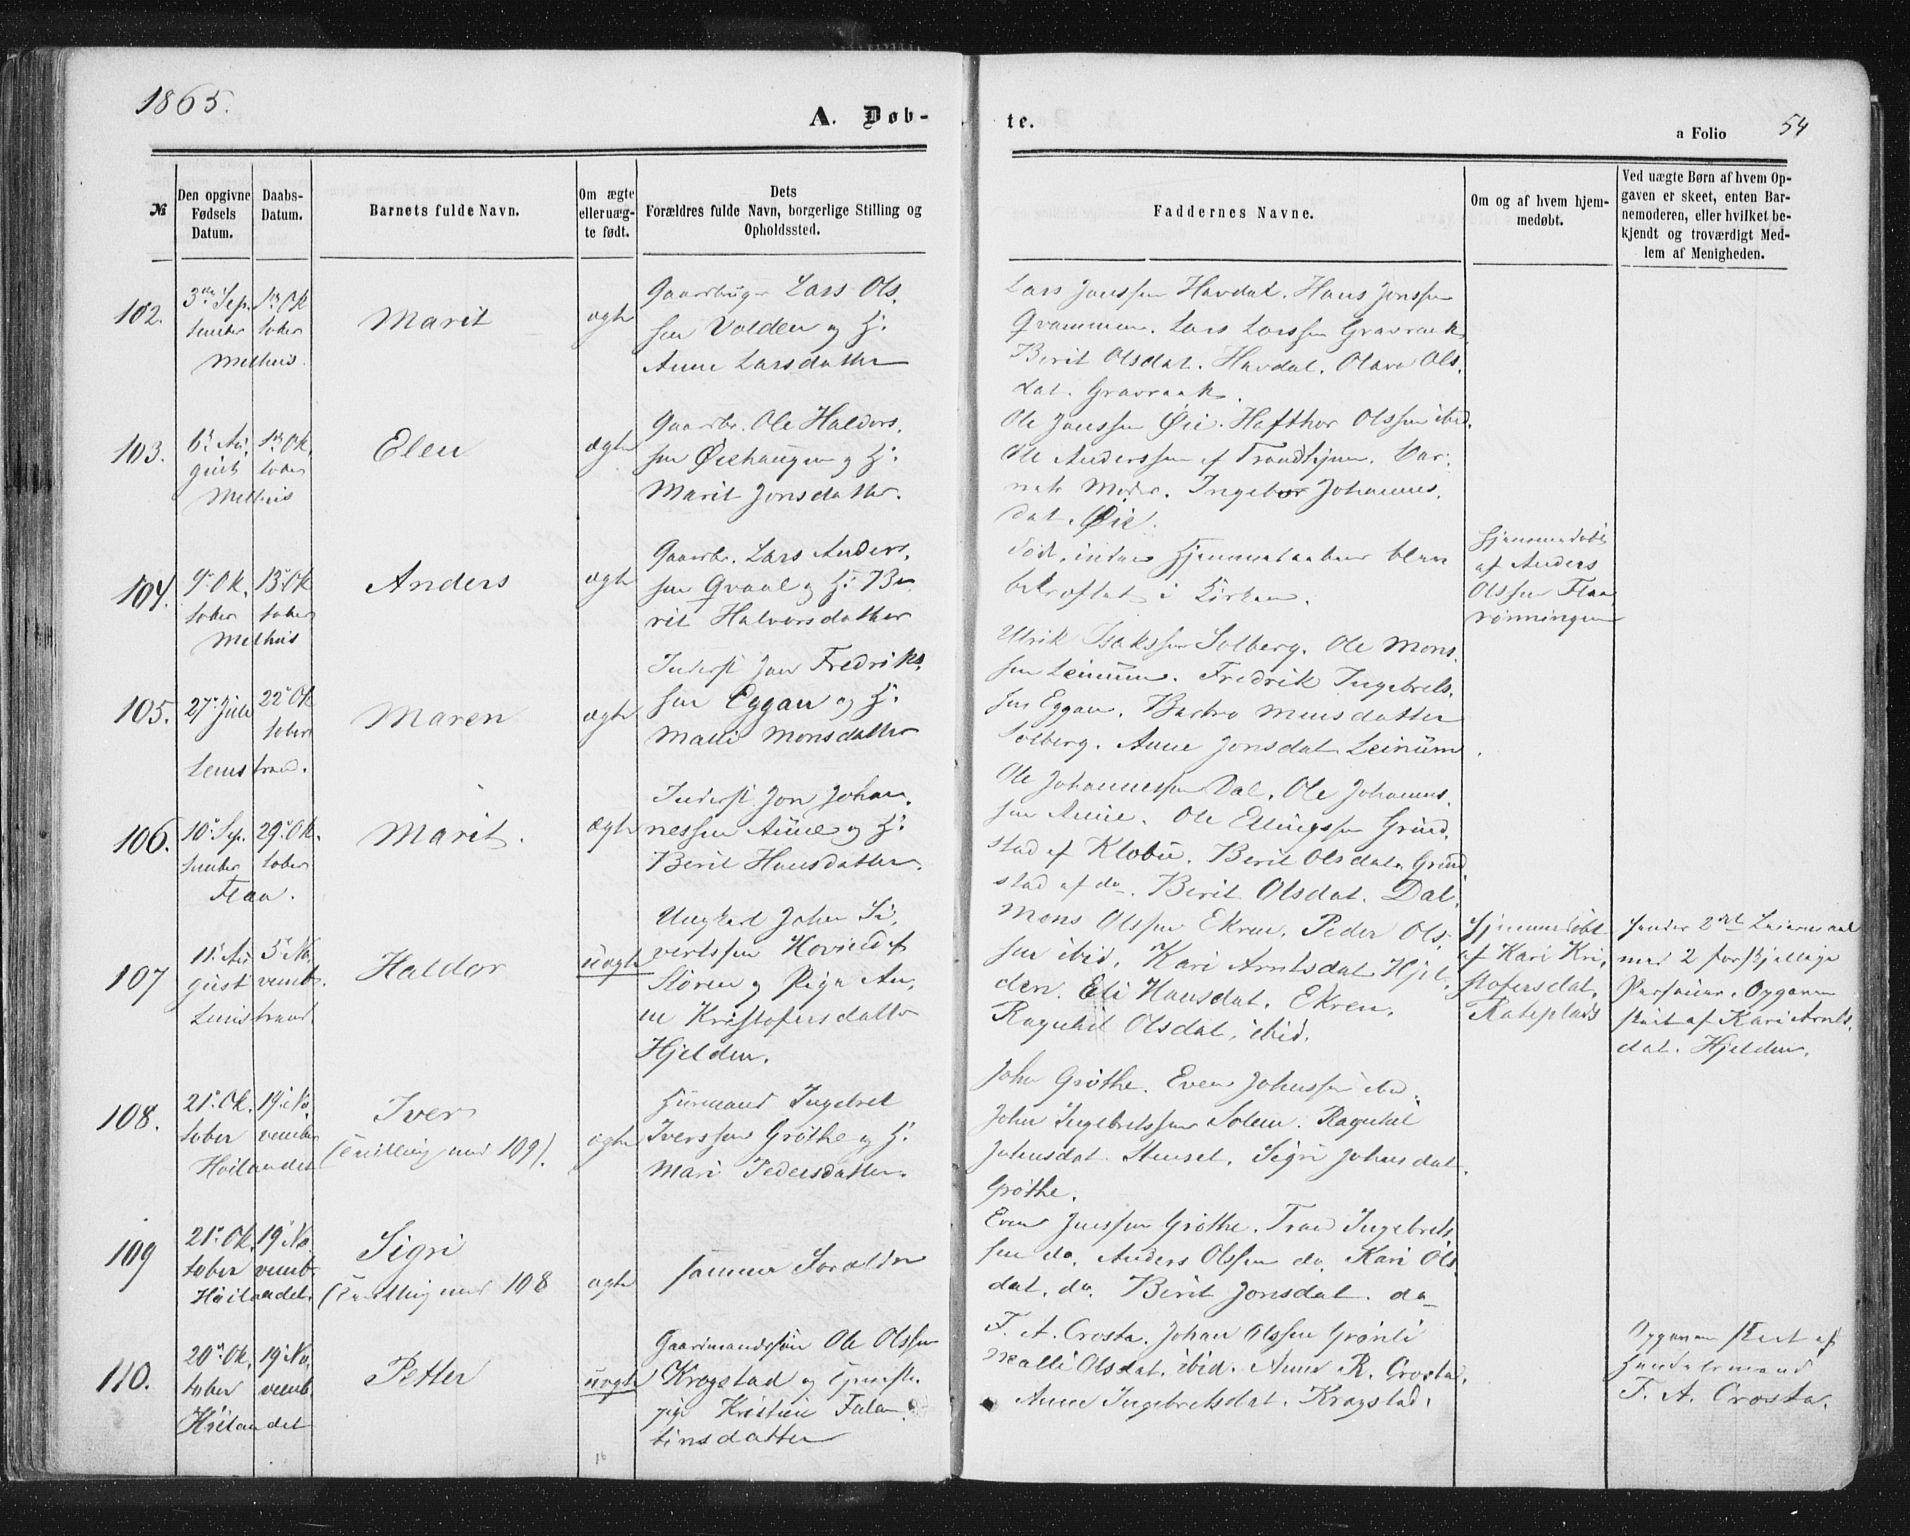 1865.
A. Døb-
te.
a Folio 54
№
Den opgivne
Fødsels
Datum.
Daabs-
Datum.
Barnets fulde Navn.
Om ægte
eller uæg-
te født.
Dets
Forældres fulde Navn, borgerlige Stilling og
Opholdssted.
Faddernes Navne.
Om og af hvem hjem-
medøbt.
Ved uægte Børn af hvem Op-
gaven er skeet, enten Bar-
nemoderen, eller hvilket be-
kjendt og troværdigt Med-
lem af Menigheden.
102.
3die Sep.
tember
Melhus
1ste Ok
tober
Marit
ægte
Gaardbruger Lars Ols.
sen Volden og H.
Anne Larsdatter
Lars Jonssen Havdal. Hans Jonssen
Qvammen. Lars Larssen Gravraak
Berit Olsdat. Havdal. Olava Ols.
dat. Gravraak.
103.
6te Au.
gust
Melhus
1ste Ok.
tober
Elen
ægte
Gaardbr. Ole Haldors.
sen Øiehaugen og H.
Marit Jonsdatter.
Ole Jonssen Øie. Hafthor Olssen ibid.
Ole Anderssen af Trondhjem. Bar.
nets Moder. Ingebor Johannes.
dat. Øie.
104.
9. Ok.
tober
Melhus
13. Ok
tober
Anders
ægte
Gaardbr. Lars Anders.
sen Qvaal og H. Be
rit Halvorsdatter
død, inden Hjemmedaaben blev
bekræftet i Kirken.
Hjemmedøbt
af Anders
Olssen Flaa
rønningen
105.
27. Juli
Leinstrand.
22. Ok
tober
Maren
ægte
Inderst Jon Fredriks.
sen Eggan og H.
Malli Monsdatter
Ulrik Isakssen Solberg. Ole Mons.
sen Leinum. Fredrik Ingebrets.
sen Eggan. Monsdatter
Solberg. Anne Jonsdat Leinum.
106.
10. Sep.
tember
Flaa.
29. Ok.
tober
Marit.
ægte
Inderst Jon Johan.
nessen Aune og H.
Berit Hansdatter.
Ole Johannessen Dal. Ole Johannes.
sen Aune. Ole Ellingssen Grind.
stad af Klæbu. Berit Olsdat. Grind
stad af do. Berit Olsdat. Dal.
107
11. Au
gust
Leinstrand
5. No.
vemb.
Haldor
uægte
Ungkarl Johan Si.
vertssen Hovind af
Støren og Pige An.
ne Kristofersdatter
Hjelden.
Mons Olssen Ekren. Peder Ols.
sen ibid. Kari Arntsdat Hjel.
den. Eli Hansdat. Ekren.
Ragnhil Olsdat. ibid.
Hjemmedøbt
af Kari Kri.
stofersdat.
Rateplads
2det Leiermaal
med 2 forskjellige
Personer. Opgaven
skeet af Kari Arnts.
dat. Hjelden.
108.
21. Ok.
tober
Høilandet
19. No.
vember
Iver
(Tvilling med 109).
ægte
Husmand Ingebret
Iverssen Grøthe og H.
Mari Pedersdatter.
John Grøthe. Even Johnssen ibid.
John Ingebretssen Solem. Ragnhil
Johnsdat. Stenset. Sigri Johnsdat.
Grøthe.
109
21. Ok.
tober
Høilandet.
19. No.
vemb.
Sigri
(Tvilling med 108
ægte
samme Forældre
Even Jonssen Grøthe. Trond Ingebrets
sen do. Anders Olssen do. Kari Ols.
dat. do. Berit Jonsdat. do
110.
20. Ok.
tober
Høilandet
19. No.
vemb.
Petter
uægte
Gaardmandssøn Ole Olssen
Krogstad og Tjeneste.
pige Kristine Falen
tinsdatter
F. A. Crosta. Johan Olssen Grønli
Malli Olsdat. ibid. Anne R. Crosta.
Anne Ingebretsdat. Krogstad.
Opgaven skeet af
Handelsmand
F. A. Crosta.
16